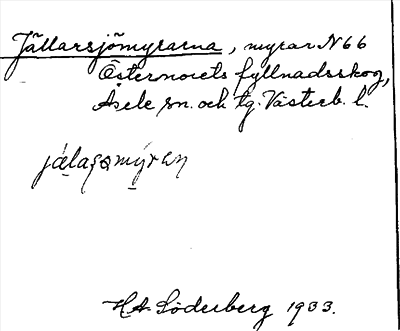 Jällarsjömyrarna, myrar N 66
Östernorets fyllnadsskog,
Åsele sn. och tg. Västerb. l.
H.A. Söderberg 1933.